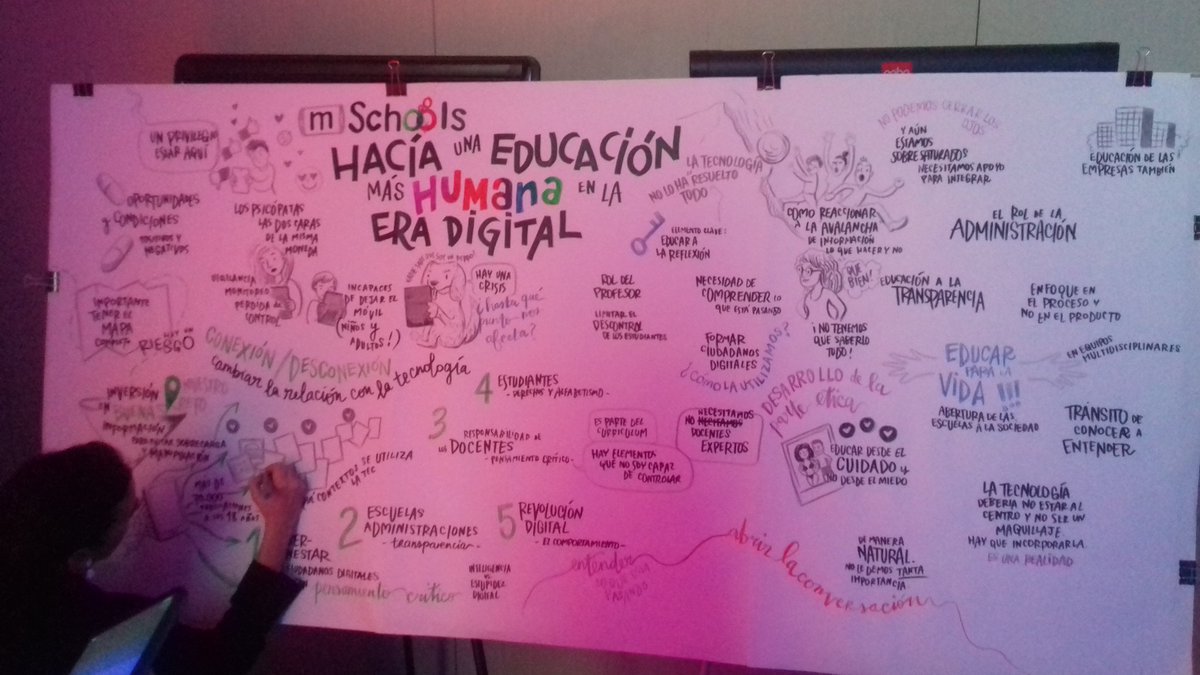 UN PRIVILEGIO
ESTAR AQUÍ
mSchools
HACÍA UNA EDUCACIÓN
MÁS HUMANA EN LA
ERA DIGITAL
OPORTUNIDADES
y CONDICIONES
POSITIVOS Y
NEGATIVOS
LOS PSICÓPATAS
LAS DOS CARAS
DE LA MISMA
MONEDA
VIGILANCIA
MONITOREO
PERDIDA DE
CONTROL
INCAPACES
DE DEJAR EL
MÓVIL
(NIÑOS y
ADULTOS!)
HAY UNA
CRISIS
¿hasta qué
punto nos
afecta?
IMPORTANTE
TENER EL
MAPA
COMPLETO
HAY UN
RIESGO
CONEXIÓN/DESCONEXIÓN
cambiar la relación con la tecnología
INVERSIÓN
EN BUENA
INFORMACIÓN
PARA EVITAR SOBRECARGA
Y MANIPULACIÓN
MÁS DE
A LOS 18 AÑOS
CONTEXTOS SE UTILIZA
LA TEC
4 ESTUDIANTES
- DERECHOS Y ALFABETISMO -
3 RESPONSABILIDAD DE
LOS DOCENTES
- PENSAMIENTO CRÍTICO -
2 ESCUELAS
ADMINISTRACIONES
- transparencia -
5 REVOLUCIÓN
DIGITAL
- EL COMPORTAMIENTO -
CIUDADANOS DIGITALES
pensamiento crítico
INTELIGENCIA
VS
ESTUPIDEZ
DIGITAL
entender
LO QUE ESTÁ
PASANDO
LA TECNOLOGÍA
NO LO HA RESUELTO
TODO
ELEMENTO CLAVE:
EDUCAR A
LA REFLEXIÓN
ROL DEL
PROFESOR
LIMITAR EL
DESCONTROL
DE LOS ESTUDIANTES
NECESIDAD DE
COMPRENDER lo
QUE ESTÁ PASANDO
FORMAR
CIUDADANOS
DIGITALES
¿CÓMO LA UTILIZAMOS?
ES PARTE DEL
CURRICULUM
HAY ELEMENTOS
QUE NO SOY CAPAZ
DE CONTROLAR
NECESITAMOS
NO NECESITAMOS
DOCENTES
EXPERTOS
NO PODEMOS CERRAR LOS
OJOS
Y AÚN
ESTAMOS
SOBRESATURADOS
NECESITAMOS APOYO
PARA INTEGRAR
COMO REACCIONAR
A LA AVALANCHA
DE INFORMACIÓN
LO QUE HAY Y NO
QUE
BIEN!
¡NO TENEMOS
QUE SABERLO
TODO!
DESARROLLO de la
ética
EDUCAR DESDE EL
CUIDADO y
NO DESDE EL MIEDO
abrir la conversación
DE MANERA
NATURAL.
NO LE DEMOS TANTA
IMPORTANCIA
EDUCACIÓN DE LAS
EMPRESAS TAMBIÉN
EL ROL DE LA
ADMINISTRACIÓN
EDUCACIÓN A LA
TRANSPARENCIA
ENFOQUE EN
EL PROCESO Y
NO EN EL PRODUCTO
EN EQUIPOS
MULTIDISCIPLINARES
EDUCAR
PARA LA
VIDA!!!
ABERTURA DE LAS
ESCUELAS A LA SOCIEDAD
TRÁNSITO DE
CONOCER A
ENTENDER
LA TECNOLOGÍA
DEBERÍA NO ESTAR AL
CENTRO Y NO SER UN
MAQUILLAJE
HAY QUE INCORPORARLA.
ES UNA REALIDAD